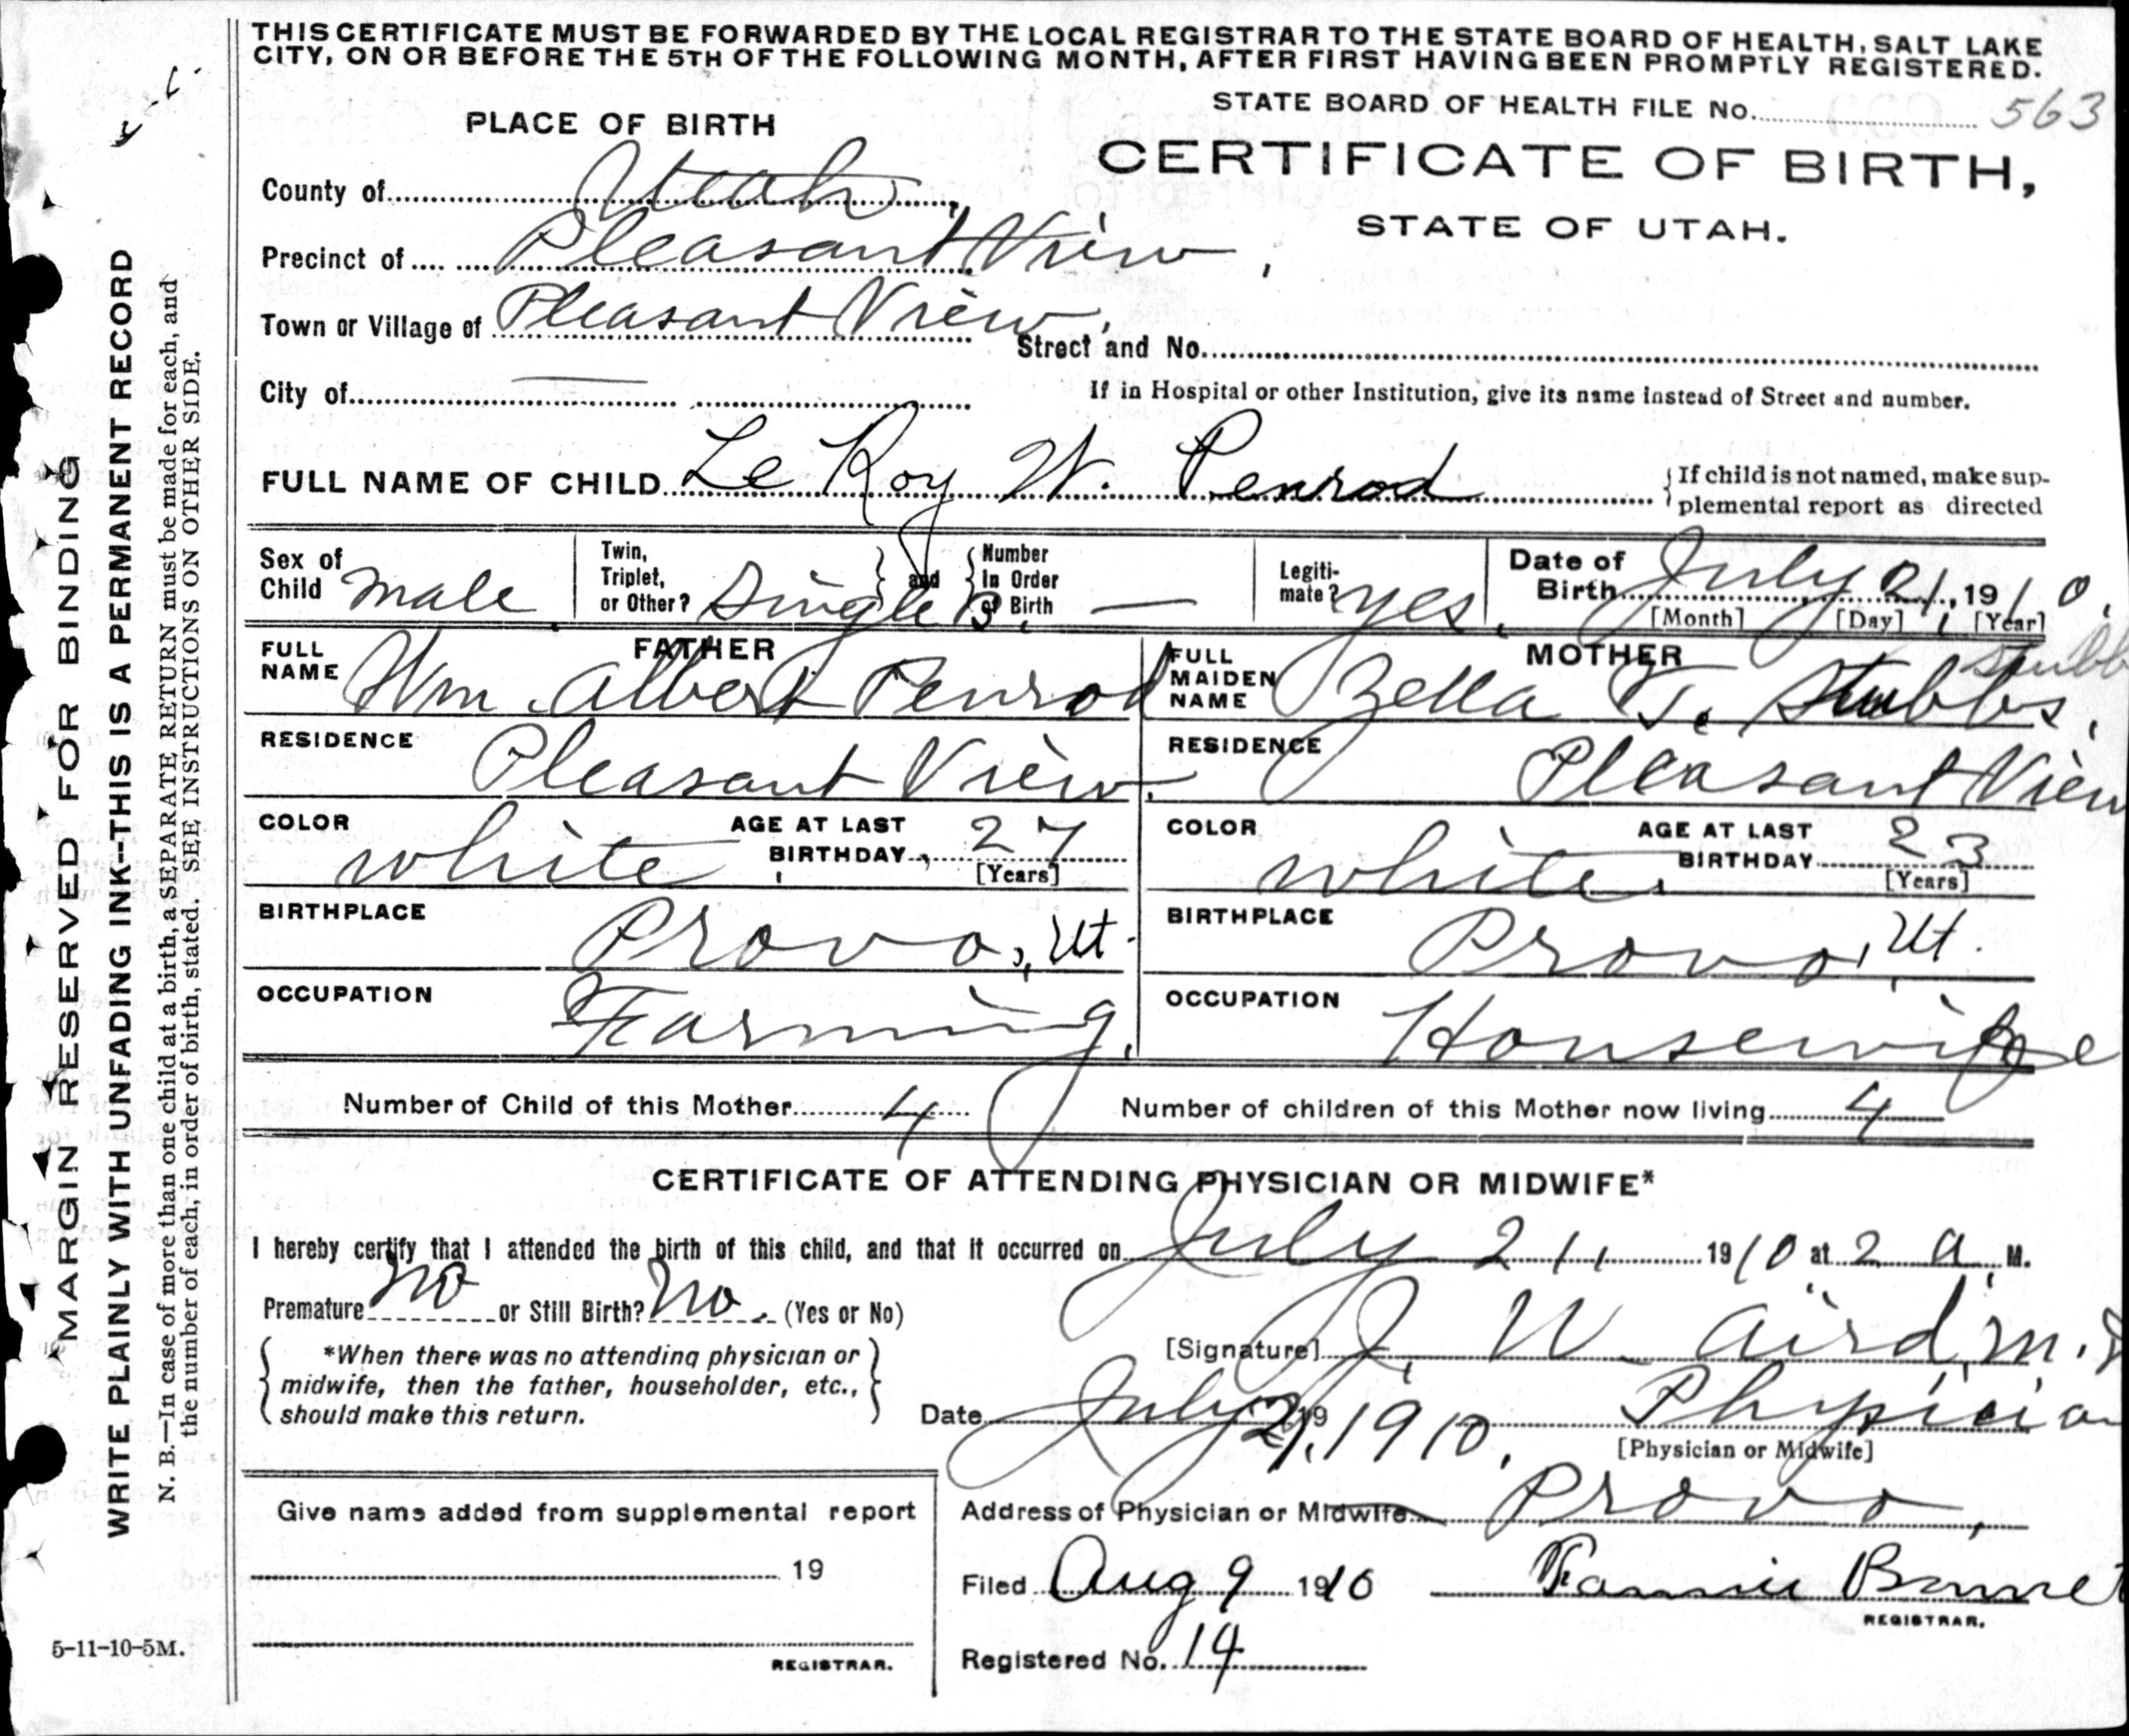 THIS CERTIFICATE MUST BE FORWARDED BY THE LOCAL REGISTRAR TO THE STATE BOARD OF HEALTH, SALT LAKE
CITY, ON OR BEFORE THE 5TH OF THE FOLLOWING MONTH, AFTER FIRST HAVING BEEN PROMPTLY REGISTERED.
STATE BOARD OF HEALTH FILE No. 563
PLACE OF BIRTH
CERTIFICATE OF BIRTH,
STATE OF UTAH.
County of Utah,
Precinct of Pleasant View,
Town or Village of Pleasant View,
Street and No.
City of —
If in Hospital or other Institution, give its name instead of Street and number.
FULL NAME OF CHILD Le Roy W. Penrod
{If child is not named, make sup-
plemental report as directed
Sex of Child male
Twin, Triplet, or Other? Single
and
Number In Order of Birth —
Legiti-mate? yes.
Date of Birth July 21, 1910.
[Month] [Day] [Year]
FATHER
FULL NAME Wm. Albert Penrod
RESIDENCE Pleasant View.
COLOR white
AGE AT LAST BIRTHDAY 27
[Years]
BIRTHPLACE Provo, Ut.
OCCUPATION Farming.
MOTHER
FULL MAIDEN NAME Zella T. Stubbs.
RESIDENCE Pleasant View
COLOR white.
AGE AT LAST BIRTHDAY 23
[Years]
BIRTHPLACE Provo, Ut.
OCCUPATION Housewife
Number of Child of this Mother 4
Number of children of this Mother now living 4
CERTIFICATE OF ATTENDING PHYSICIAN OR MIDWIFE*
I hereby certify that I attended the birth of this child, and that it occurred on July 21, 1910 at 2 a M.
Premature no or Still Birth? no. (Yes or No)
[Signature] J. W. Aird, M.D
*When there was no attending physician or
midwife, then the father, householder, etc.,
should make this return.
Date July 21, 1910.
19
Physician
[Physician or Midwife]
Address of Physician or Midwife Provo,
Give name added from supplemental report
19
REGISTRAR.
Filed Aug 9 1910
Fannie
REGISTRAR.
Registered No. 14
MARGIN RESERVED FOR BINDING
WRITE PLAINLY WITH UNFADING INK--THIS IS A PERMANENT RECORD
N. B.—In case of more than one child at a birth, a SEPARATE RETURN must be made for each, and
the number of each, in order of birth, stated. SEE INSTRUCTIONS ON OTHER SIDE.
5-11-10-5M.